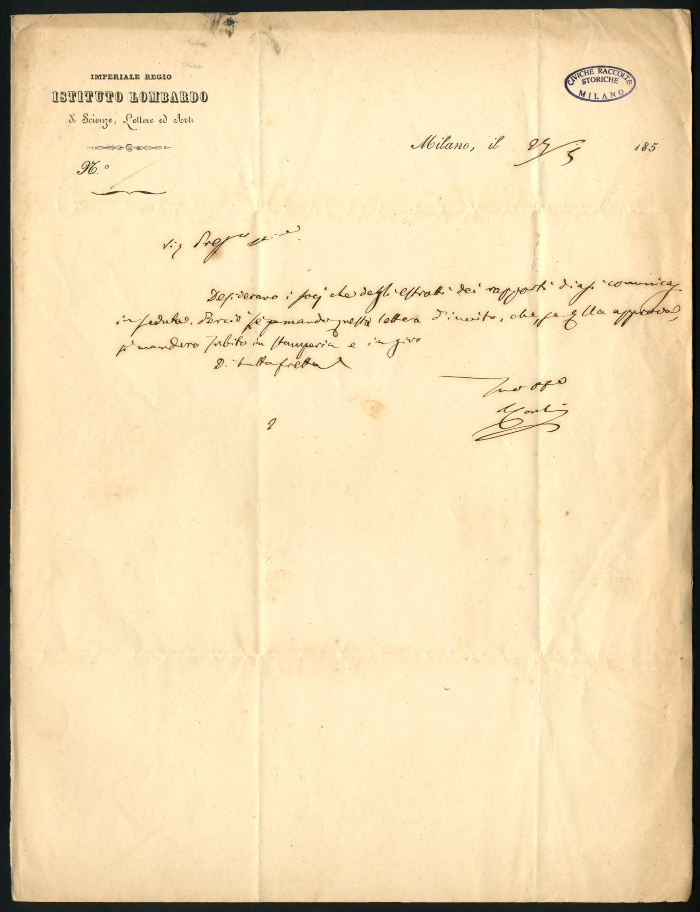 IMPERIALE REGIO
ISTITUTO LOMBARDO
di Scienze, Lettere ed Arti
N.º
CIVICHE RACCOLTE
STORICHE
MILANO
Milano, il 29/5 185
Sig
Desiderano i socj che degli estratti dei rapporti si comunica
in seduta. Perciò lettera d'invito, che se Ella approva,
si manderà subito in stamperia e in giro
Di tutta fretta
Suo